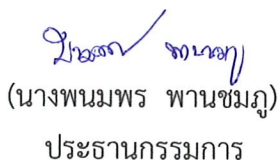 (นางพนมพร พานชมภู)
ประธานกรรมการ